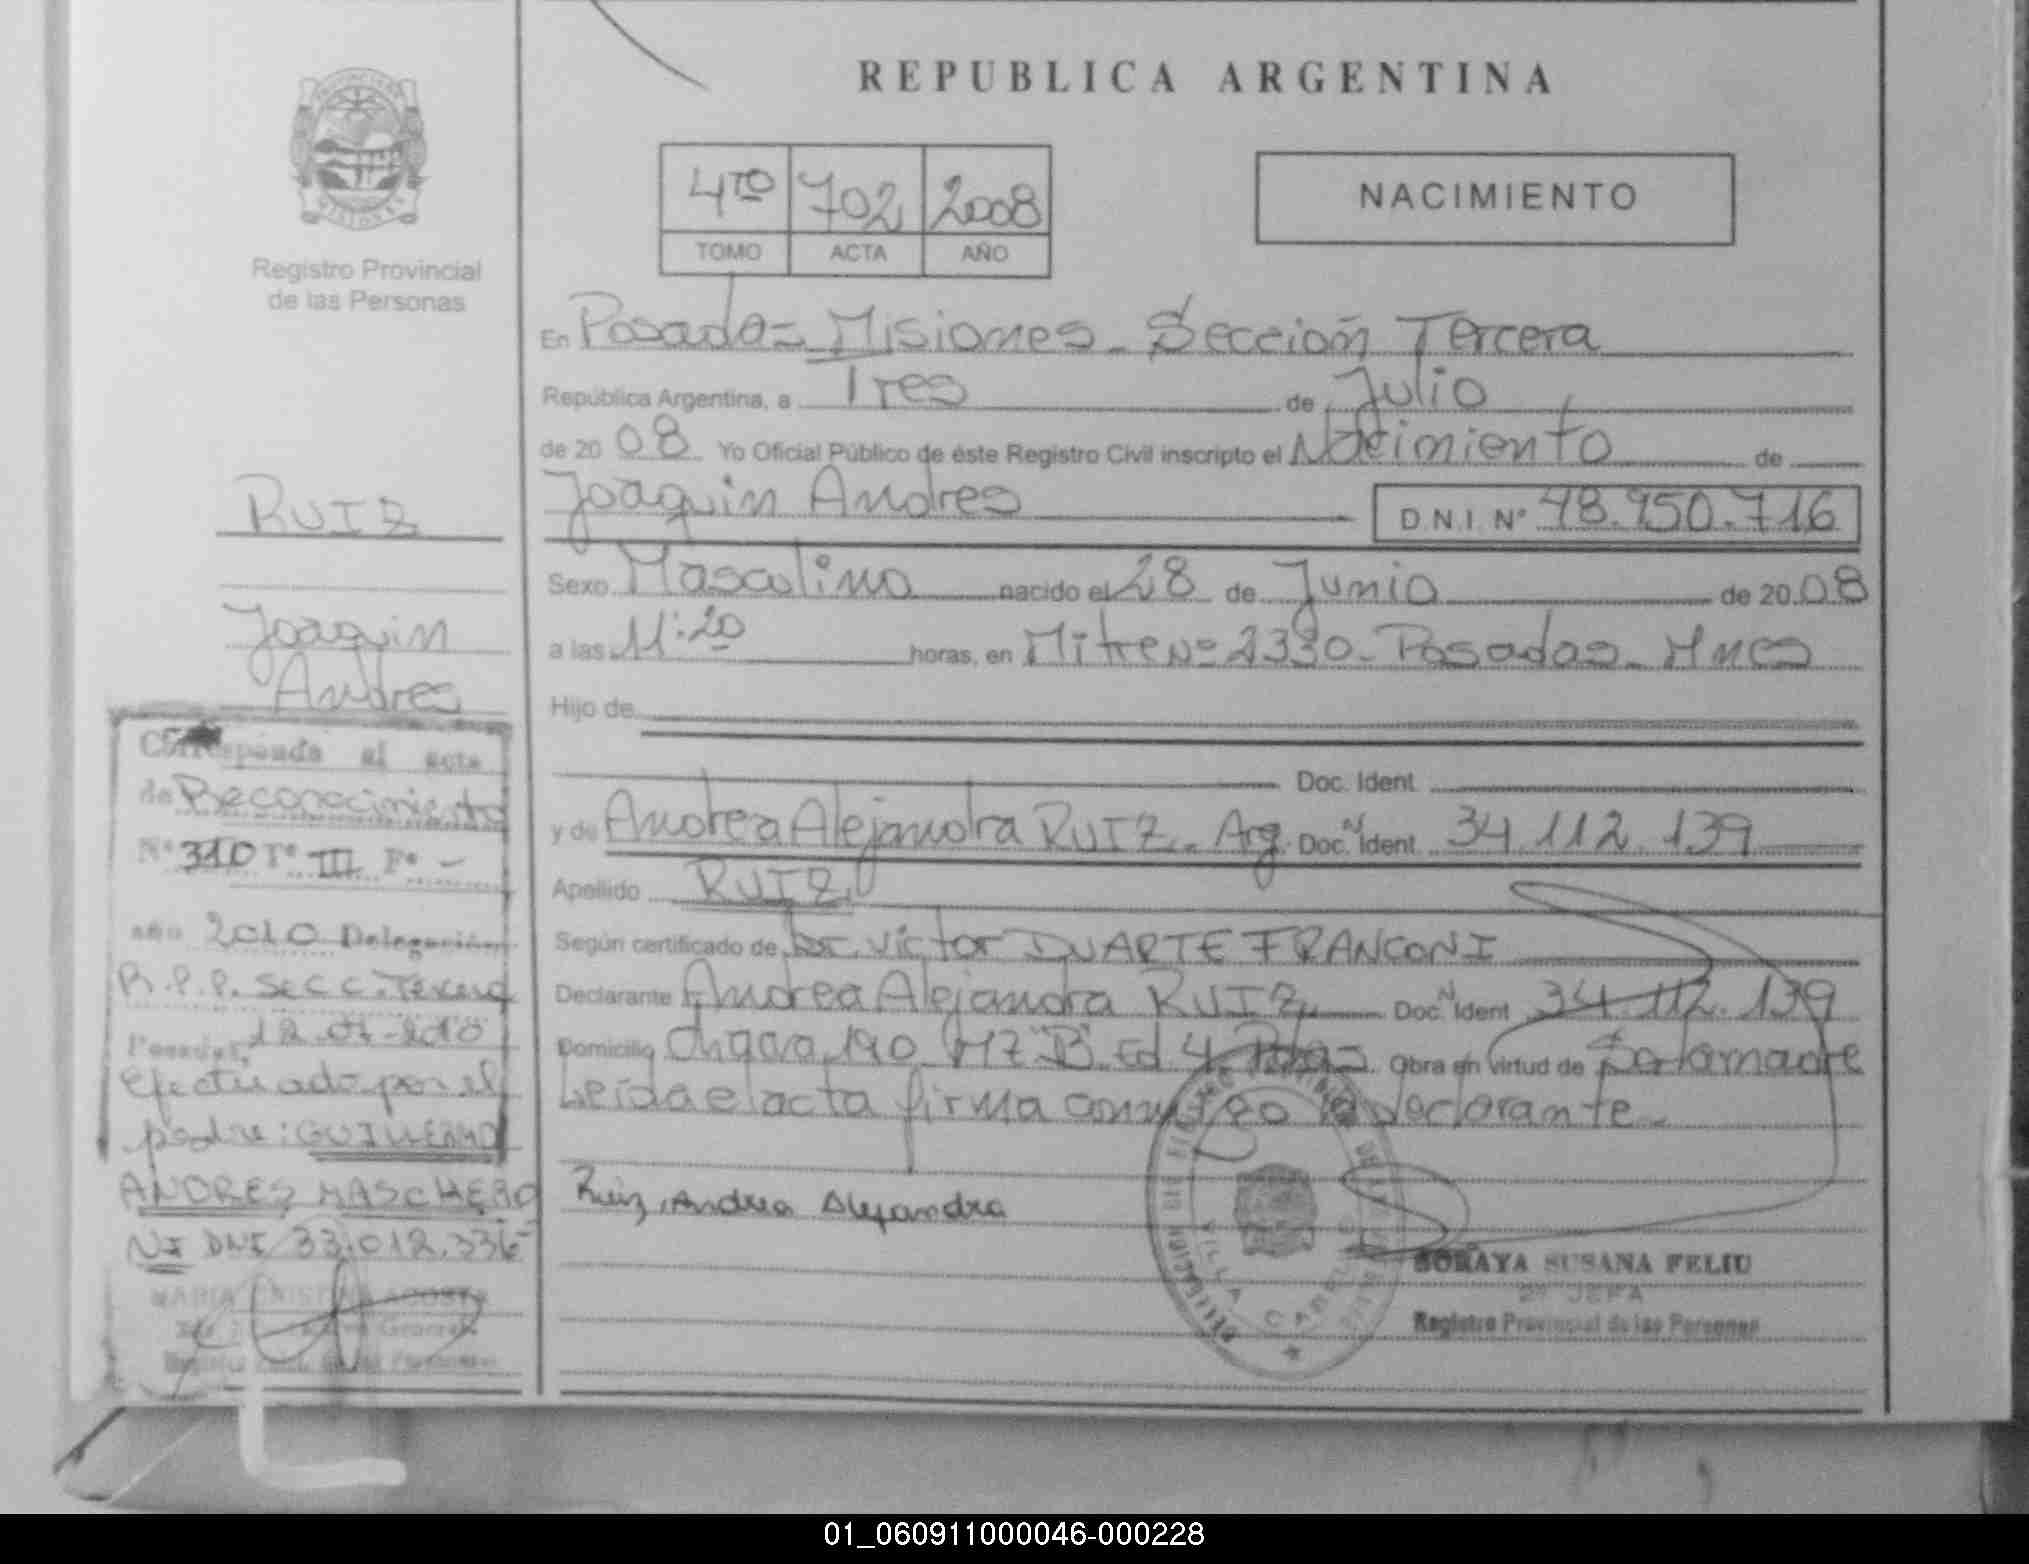 REPUBLICA ARGENTINA
PROVINCIA DE
MISIONES
Registro Provincial
de las Personas
4TO 702 2008
TOMO ACTA AÑO
NACIMIENTO
En Posadas Misiones - Sección Tercera
República Argentina, a Tres de Julio
de 20 08 Yo Oficial Público de éste Registro Civil inscripto el Nacimiento de
Joaquin Andres D.N.I. N° 48.950.716
Sexo Masculino nacido el 28 de Junio de 20 08
a las 11:20 horas, en Mitre Nº 2330 - Posadas - Mnes
Hijo de
Doc. Ident
y de Andrea Alejandra RUIZ - Arg. Doc. Ident 34.112.139
Apellido RUIZ
Según certificado de Dr. Victor DUARTE FRANCONI
Declarante Andrea Alejandra RUIZ Doc. Ident 34.112.139
Domicilio Chacra 190 MZ "B" Ed 4 Pdas Obra en virtud de Ser la madre
Leída el acta firma conmigo la declarante -
Ruiz, Andrea Alejandra
SORAYA SUSANA FELIU
2° JEFA
Registro Provincial de las Personas
VILLA CABELLO
RUIZ
Joaquin
Andres
Corresponde al acta
de Reconocimiento
N° 310 T° III F° -
año 2010 Delegación
R.P.P. Secc. Tercera
Posadas,
Efectuado por el
padre: GUILLERMO
ANDRES MASCHERO
NI DNI 33.012.336
MARIA CRISTINA ACOSTA
01_060911000046-000228